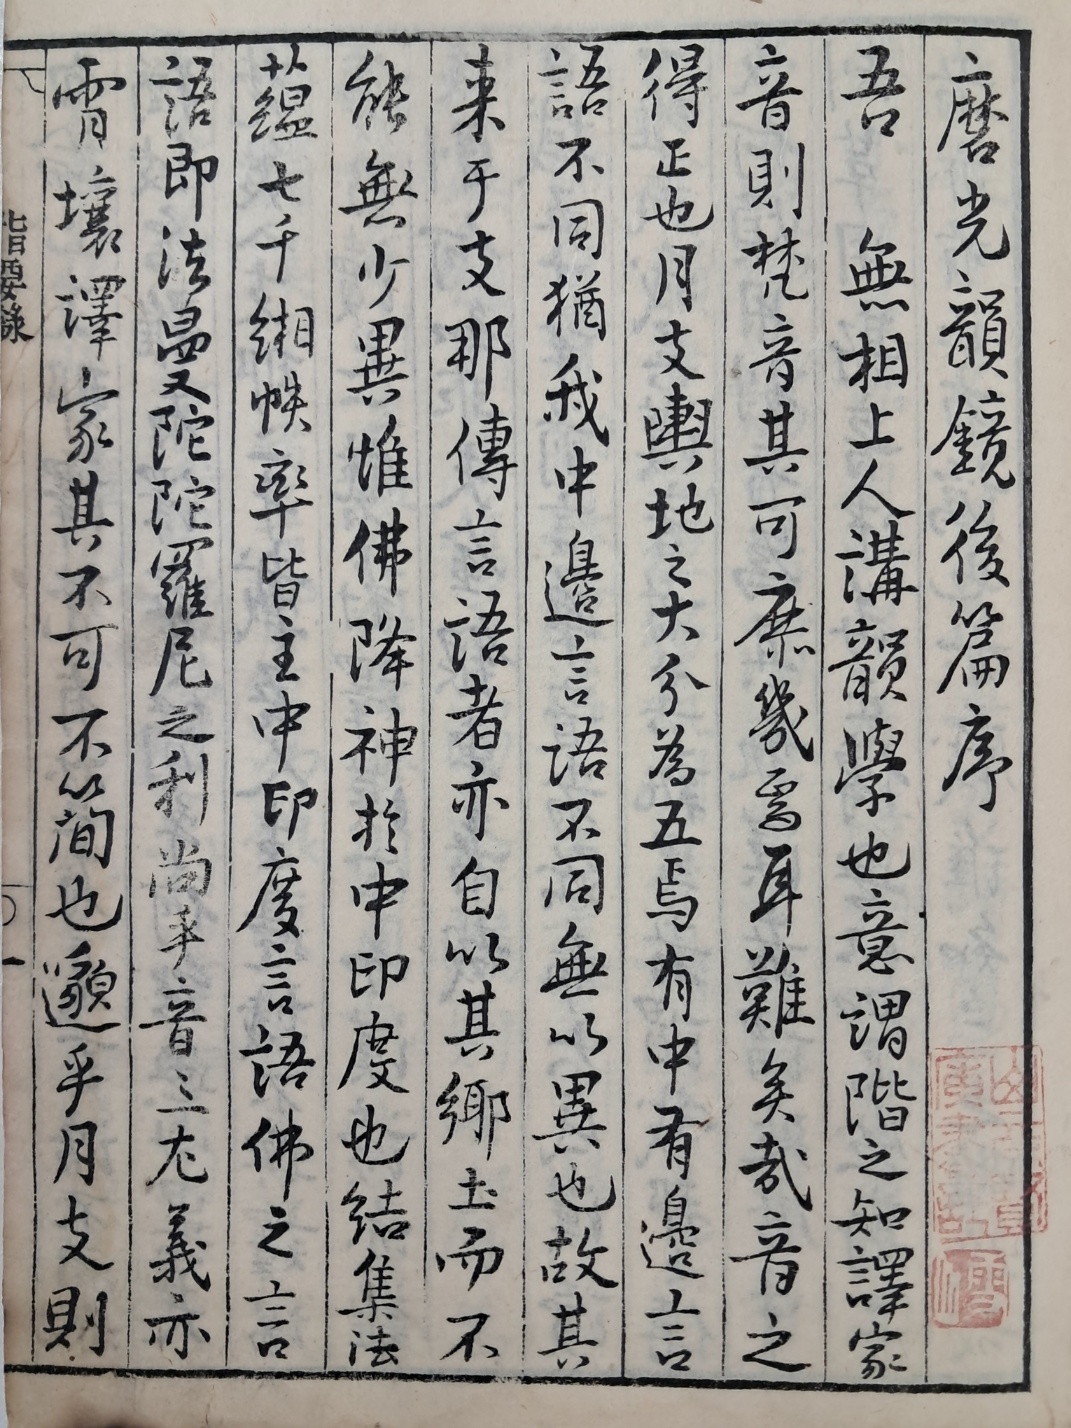 磨光韻鏡後篇序
吾 無相上人講韻學也意謂階之知譯家
音則梵音其可庶幾焉耳難矣哉音之
得正也月支輿地之大分為五焉有中有邊言
語不同猶我中邊言語不同無以異也故其
来于支那傳言語者亦自以其鄉土而不
能無少異惟佛降神於中印度也結集法
蘊七千緗帙率皆主中印度言語佛之言
語即法曼陀陀羅尼之利尚乎音三尤義亦
霄壤譯家其不可不簡也邈乎月支則
指要錄
一